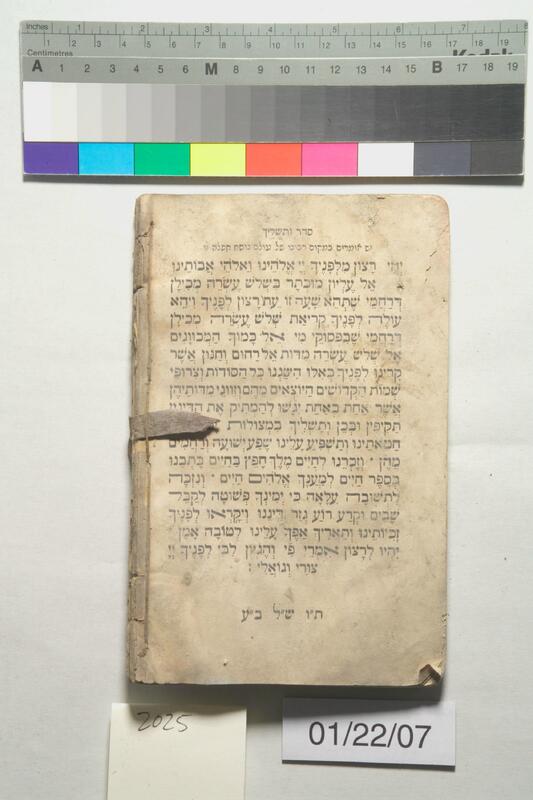 Inches 1 2 3 4 5 6 7 8
1 2 3 4 5 6 7 8 9 10 11 12 13 14 15 16 17 18 19
Centimetres Kodak
A 1 2 3 4 5 6 M 8 9 10 11 12 13 14 15 B 17 18 19
סדר ותשליך
יש אומרים במקום רבינו של עולם נוסח תפלה זו
יהי רצון מלפניך יי אלהינו ואלהי אבותינו
אל עליון מוכתר בשלש עשרה מכילן
דרחמי שתהא שעה זו עת רצון לפניך ויהא
עולה לפניך קריאת שלש עשרה מכילן
דרחמי שבפסוקי מי אל כמוך המכוונים
אל שלש עשרה מדות אל רחום וחנון אשר
קרינו לפניך כאלו השגנו כל הסודות וצרופי
שמות הקדושים היוצאים מהם וזווגי מדותיהן
אשר אחת באחת יגשו להמתיק את הדינין
תקיפין ובכן ותשליך במצולות
חטאתינו ותשפיע עלינו שפע ישועה ורחמים
מהן ׃ וזכרנו לחיים מלך חפץ בחיים כתבנו
בספר חיים למענך אלהים חיים ׃ ונזכה
לתשובה עלאה כי ימינך פשוטה לקבל
שבים וקרע רוע גזר דיננו ויקראו לפניך
זכיותינו ותאריך אפך עלינו לטובה אמן
יהיו לרצון אמרי פי והגיון לבי לפניך יי
צורי וגואלי ׃
ת"ו ש"ל ב"ע
2025
01/22/07